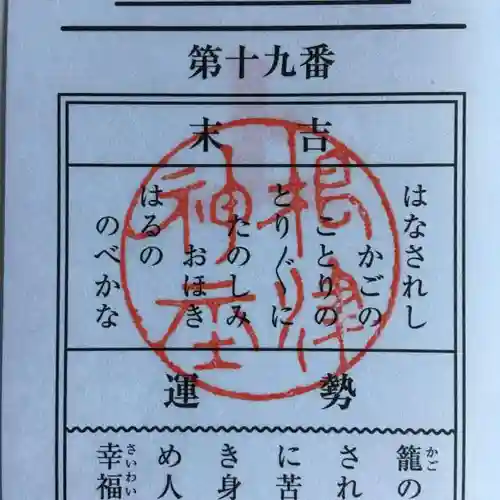 第十九番
末吉
はなされし
かごの
ことりの
とり〴〵に
たのしみ
おほき
はるの
のべかな
根津
神社
運勢
籠の
かご
され
に苦
き身
め人
幸福
さいわい